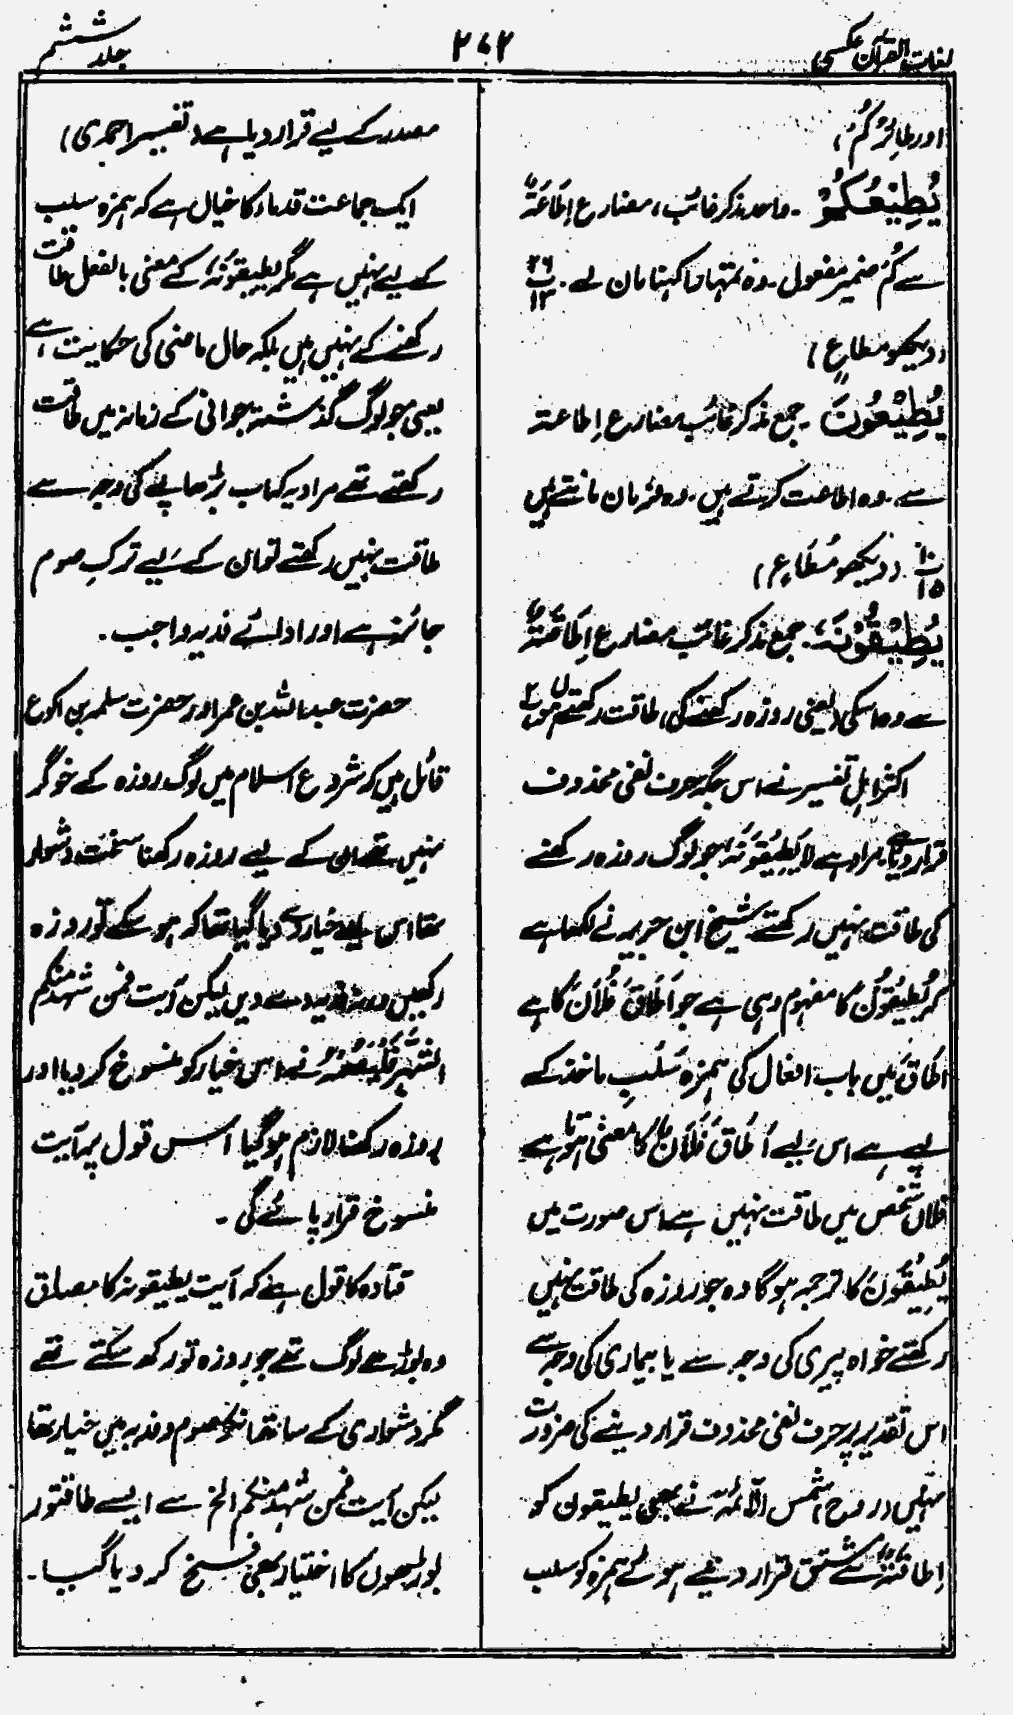 لغات القرآن عکسی
۲۷۲
جلد ششم
اور طائِرُکُم،)
یُطِیْعُکُمْ ۔ واحد مذکر غائب، مضارع اِطَاعَۃٌ
سے کُمْ ضمیر مفعول۔ وہ تمہارا کہنا مان لے۔ پ ۲۶ ۱۳
(دیکھو مطاع)
یُطِیْعُوْنَ ۔ جمع مذکر غائب مضارع اِطاعۃ
سے۔ وہ اطاعت کرتے ہیں۔ وہ فرمان مانتے ہیں
پ ۱۰ ۱۵ (دیکھو مُطَاعٍ)
یُطِیْقُوْنَہٗ ۔ جمع مذکر غائب مضارع اِطَاقَۃٌ
سے وہ اسکی (یعنی روزہ رکھنے کی) طاقت رکھتے ہوں پ ۲
اکثر اہلِ تفسیر نے اس جگہ حرف نفی محذوف
قرار دیا ہے۔ مراد ہے لا یَطِیْقُوْنَہٗ جو لوگ روزہ رکھنے
کی طاقت نہیں رکھتے شیخ ابن جریر نے لکھا ہے
کہ یُطِیْقُوْنَ کا مفہوم وہی ہے جو اَطَاقَ فُلَانٌ کا ہے
اَطَاقَ میں باب افعال کی ہمزہ سَلَبِ ماخذ کے
لیے ہے اس لیے اَطَاقَ فُلَانٌ کا معنی ہوتا ہے
فلاں شخص میں طاقت نہیں ہے اس صورت میں
یُطِیْقُوْنَ کا ترجمہ ہوگا وہ جو روزہ کی طاقت نہیں
رکھتے خواہ پیری کی وجہ سے یا بیماری کی وجہ سے
اس تقدیر پر حرف نفی محذوف قرار دینے کی ضرورت
نہیں (روح) شمس الآئمہ نے بھی یطیقون کو
اِطاقۃٌ سے مشتق قرار دیتے ہوئے ہمزہ کو سلب
مصدر کے لیے قرار دیا ہے (تفسیر احمدی)
ایک جماعت قدماء کا خیال ہے کہ ہمزہ سلب
کے لیے نہیں ہے مگر یطیقونہٗ کے معنی بالفعل طاقت
رکھنے کے نہیں ہیں بلکہ حال ماضی کی حکایت ہے
یعنی جو لوگ گذشتہ جوانی کے زمانہ میں طاقت
رکھتے تھے مراد یہ کہ اب بڑھاپے کی وجہ سے
طاقت نہیں رکھتے تو ان کے لیے ترکِ صوم
جائز ہے اور ادائے فدیہ واجب۔
حضرت عبداللہ بن عمر اور حضرت سلمہ بن اکوع
قائل ہیں کہ شروع اسلام میں لوگ روزہ کے خوگر
نہیں تھے ان کے لیے روزہ رکھنا سخت دشوار
تھا اس لیے اختیار دے دیا گیا تھا کہ ہو سکے تو روزہ
رکھیں ورنہ فدیہ دے دیں لیکن آیت فمن شہد منکم
الشَّہْرَ فَلْیَصُمْہُ نے اس خیار کو منسوخ کر دیا اور
روزہ رکھنا لازم ہو گیا اس قول پر آیت
منسوخ قرار پائے گی ۔
قتادہ کا قول ہے کہ آیت یطیقونہ کا مصداق
وہ بوڑھے لوگ تھے جو روزہ تو رکھ سکتے تھے
مگر دشواری کے ساتھ انکو صوم و فدیہ میں خیار تھا
لیکن آیت فمن شہد منکم الخ سے ایسے طاقتور
بوڑھوں کا اختیار بھی فسخ کر دیا گیا ۔